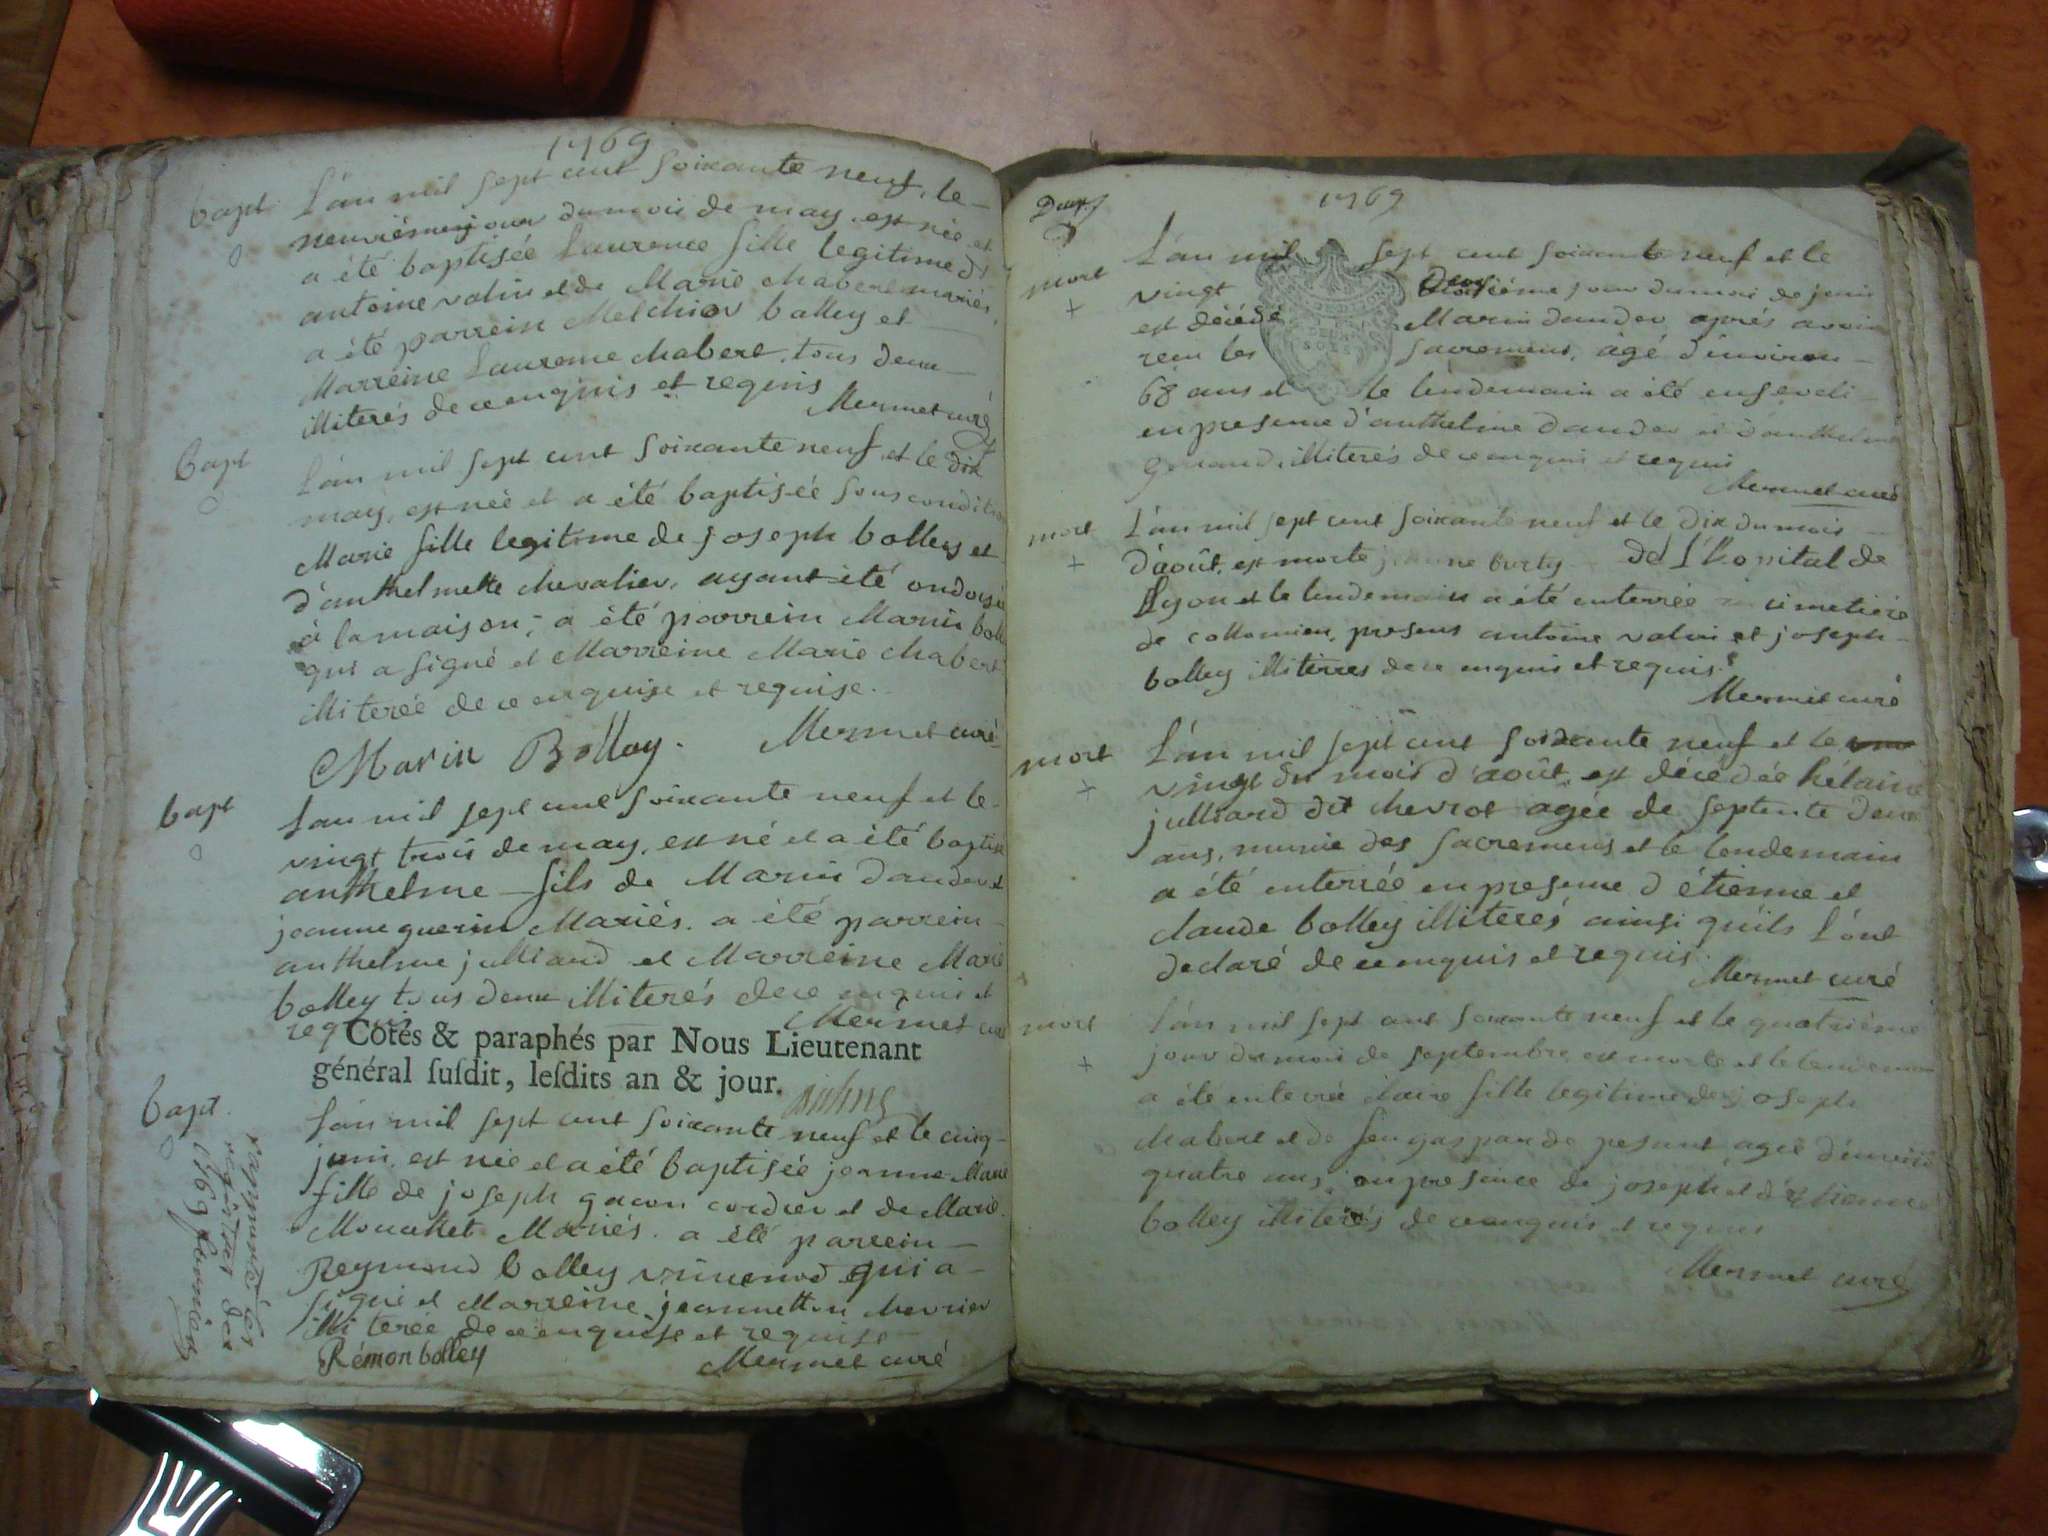 1769
bapt
L'an mil sept cent soixante neuf, le
neuviéme jour du mois de may, est née et
a été baptisée Laurence fille legitime d
antoine valin et de Marie chabert mariés,
a été parrein Melchior bolley et
Marreine Laurence chabert, tous deux
illiterés de ce enquis et requis
Mermet curé
bapt
L'an mil sept cent soixante neuf, et le dix
may, est née et a été baptisée sous condition
Marie fille legitime de joseph bolley et
d'anthelmette chevalier, ayant été ondoyé
à la maison; a été parrein Marin boll
qui a signé et Marreine Marie chabert
illiterée de ce enquise et requise.
Marin Bolley. Mermet curé
bapt
L'an mil sept cent soixante neuf et le
vingt trois de may, est né et a été baptisé
anthelme fils de Marin dandel et
jeanne guerin Mariés. a été parrein
anthelme julliand et Marreine Marie
bolley tous deux illiterés de ce enquis et
requis Mermet curé
Cotés & paraphés par Nous Lieutenant
général ſuſdit, leſdits an & jour.
bapt.
L'an mil sept cent soixante neuf et le cinq
juin, est née et a été baptisée jeanne Marie
fille de joseph gacon cordier et de Marie
Mouchet Mariés. a été parrein
Reymond bolley qui a
signé et Marreine jeannetton chevrier
illiterée de ce enquise et requise
Rémon bolley Mermet curé
les
registres des
1769
1769
mort
L'an mil sept cent soixante neuf et le
vingt jour du mois de juin
est décédé Marin dander, aprés avoir
recu les sacremens, âgé d'environ
68 ans et le lendemain a été enseveli
en presence d'anthelme dander et d'anthelme
illiterés de ce enquis et requis
Mermet curé
mort
L'an mil sept cent soixante neuf et le dix du mois
d'août, est morte jeanne burty de L'hopital de
Lyon et le lendemain a été enterrée cimetiere
de collomieu, presens antoine valin et joseph
bolley illiterés de ce enquis et requis.
Mermet curé
mort
L'an mil sept cent soixante neuf et le
vingt du mois d'août, est décédée hélaine
julliard dit chevrot agée de septente deux
ans, munie des sacremens et le lendemain
a été enterrée en presence d étienne et
claude bolley illiterés ainsi qu'ils l'ont
declaré de ce enquis et requis.
Mermet curé
mort
L'an mil sept cent soixante neuf et le quatriéme
jour du mois de septembre, est morte et le lendemain
a été enterrée claire fille legitime de joseph
chabert et de feu gasparde pesant agée d'environ
quatre ans, en presence de joseph et d'étienne
bolley illiterés de ce enquis et requis
Mermet curé